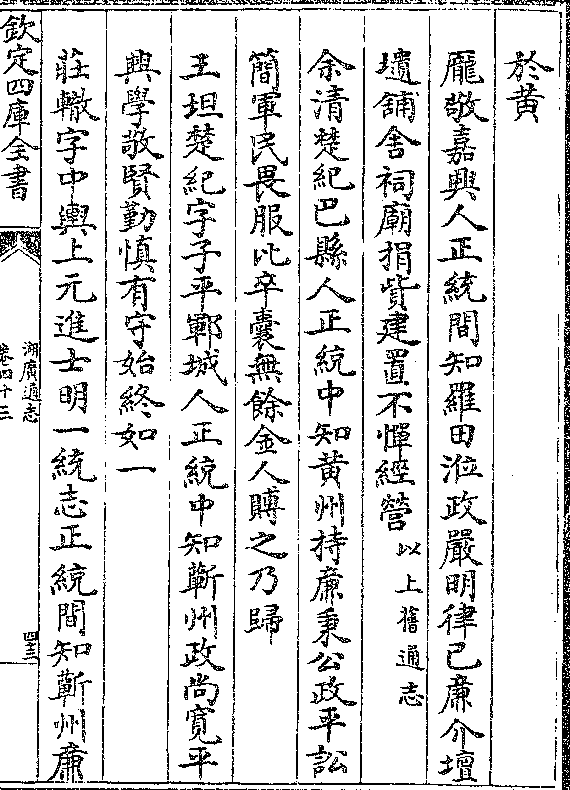 於黄
龎敬嘉興人正統間知羅田涖政嚴明律己廉介壇
壝舖舍祠廟捐貲建置不憚經營以上舊通志
余清楚紀巴縣人正統中知黄州持廉秉公政平訟
簡軍民畏服比卒囊無餘金人賻之乃歸
王坦楚紀字子平鄆城人正統中知蘄州政尚寛平
興學敬賢勤慎有守始終如一
莊轍字中輿上元進士明一統志正統間知蘄州廉
欽定四庫全書
湖廣通志
卷四十三
四三